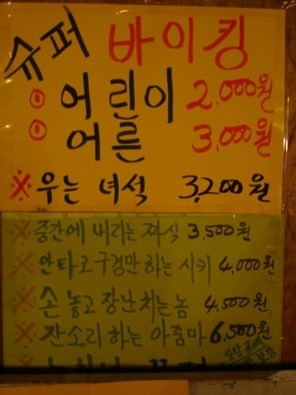 슈퍼 바이킹
○ 어린이 2,000원
○ 어른 3,000원
※ 우는 녀석 3,200원
※ 중간에 내리는 자식 3,500원
※ 안타고 구경만하는 시키 4,000원
※ 손 놓고 장난치는 놈 4,500원
※ 잔소리 하는 아줌마 6,500원